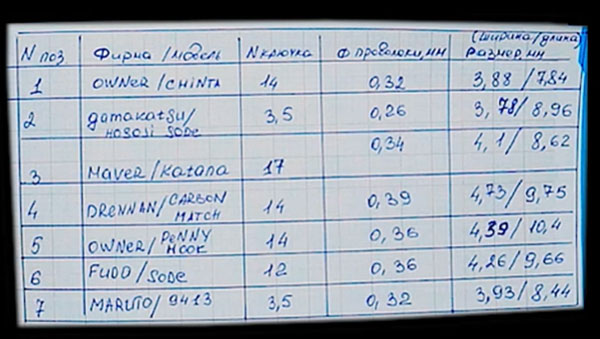 (ширина/длина)
N поз Фирма/модель N крючка Ф проволоки, мм Размер, мм
1 OWNER/CHINTA 14 0,32 3,88/7,84
2 gamakatsu/ 3,5 0,26 3,78/8,96
HOSOSI SODE
0,34 4,1/8,62
3 Maver/Katana 17
4 DRENNAN/CARBON 14 0,39 4,73/9,75
MATCH
5 OWNER/PENNY 14 0,36 4,39/10,4
HOOK
6 FUDO/SODE 12 0,36 4,26/9,66
7 MARUTO/9413 3,5 0,32 3,93/8,44